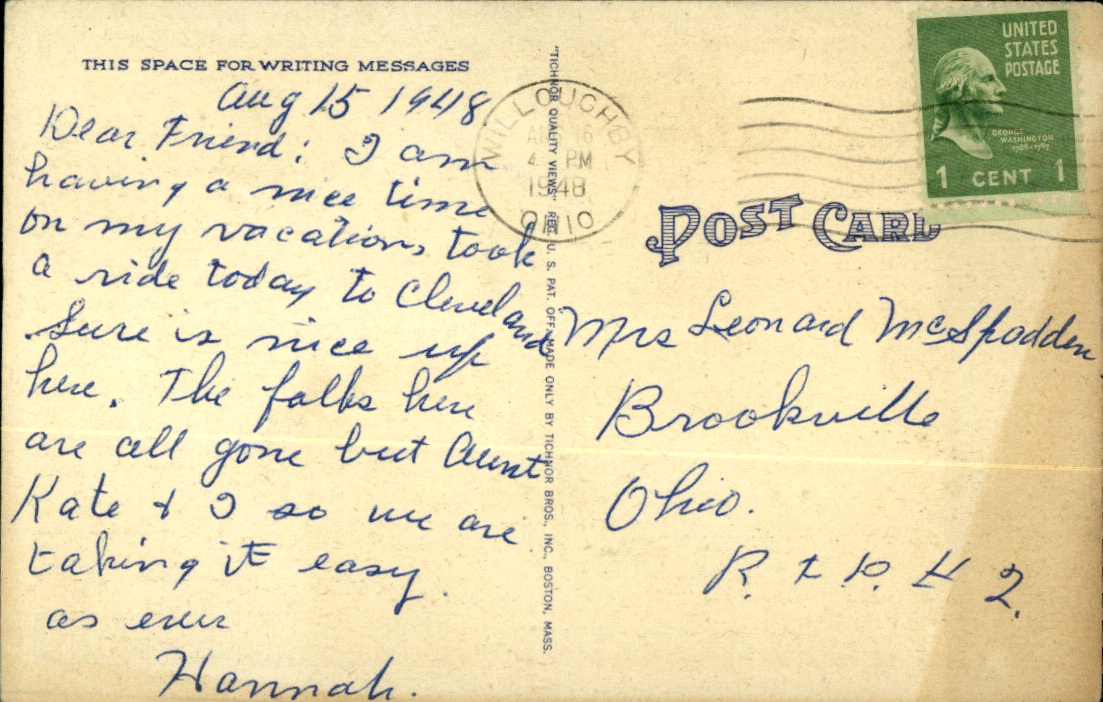 THIS SPACE FOR WRITING MESSAGES
Aug 15 1948
Dear Friend: I am
having a nice time
on my vacation, took
a ride today to Cleveland
Sure is nice up
here. The folks here
are all gone but Aunt
Kate & I so we are
taking it easy.
as ever
Hannah.
"TICHNOR QUALITY VIEWS" REG. U. S. PAT. OFF. MADE ONLY BY TICHNOR BROS., INC., BOSTON, MASS.
WILLOUGHBY
AUG 16
4 PM
1948
OHIO
UNITED
STATES
POSTAGE
GEORGE
WASHINGTON
1789-1797
1 CENT 1
POST CARD
Mrs Leonard McSpadden
Brookville
Ohio.
R. F. D. # 2.